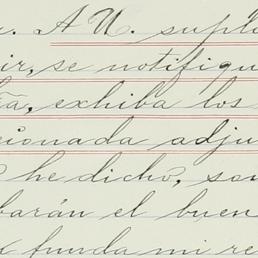 A U. suplo
ir, se notifiqu
ña, exhiba los
cionada adju
he dicho, son
barán el buen
funda mi re